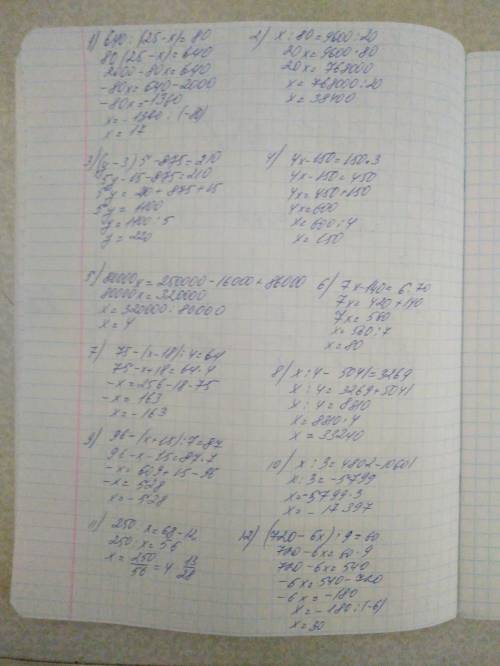 1) 640 : (25-x) = 80
80 (25-x) = 640
2000 - 80x = 640
-80x = 640 - 2000
-80x = -1360
x = -1360 : (-80)
x = 17
2) x : 80 = 9600 : 20
20x = 9600 · 80
20x = 768000
x = 768000 : 20
x = 38400
3) (y-3) 5 - 875 = 210
5y - 15 - 875 = 210
5y = 210 + 875 + 15
5y = 1100
y = 1100 : 5
y = 220
4) 4x - 150 = 150 · 3
4x - 150 = 450
4x = 450 + 150
4x = 600
x = 600 : 4
x = 150
5) 80000x = 250000 - 16000 + 86000
80000x = 320000
x = 320000 : 80000
x = 4
6) 7x - 140 = 6 · 70
7x = 420 + 140
7x = 560
x = 560 : 7
x = 80
7) 75 - (x-18) : 4 = 64
75 - x + 18 = 64 · 4
-x = 256 - 18 - 75
-x = 163
x = -163
8) x : 4 - 5041 = 3269
x : 4 = 3269 + 5041
x : 4 = 8310
x = 8310 · 4
x = 33240
9) 96 - (x+15) : 7 = 87
96 - x - 15 = 87 · 7
-x = 609 + 15 - 96
-x = 528
x = -528
10) x : 3 = 4802 - 10601
x : 3 = -5799
x = -5799 · 3
x = -17397
11) 250 : x = 68 - 12
250 : x = 56
x = 250/56 = 4 13/28
12) (720 - 6x) : 9 = 60
720 - 6x = 60 · 9
720 - 6x = 540
-6x = 540 - 720
-6x = -180
x = -180 : (-6)
x = 30